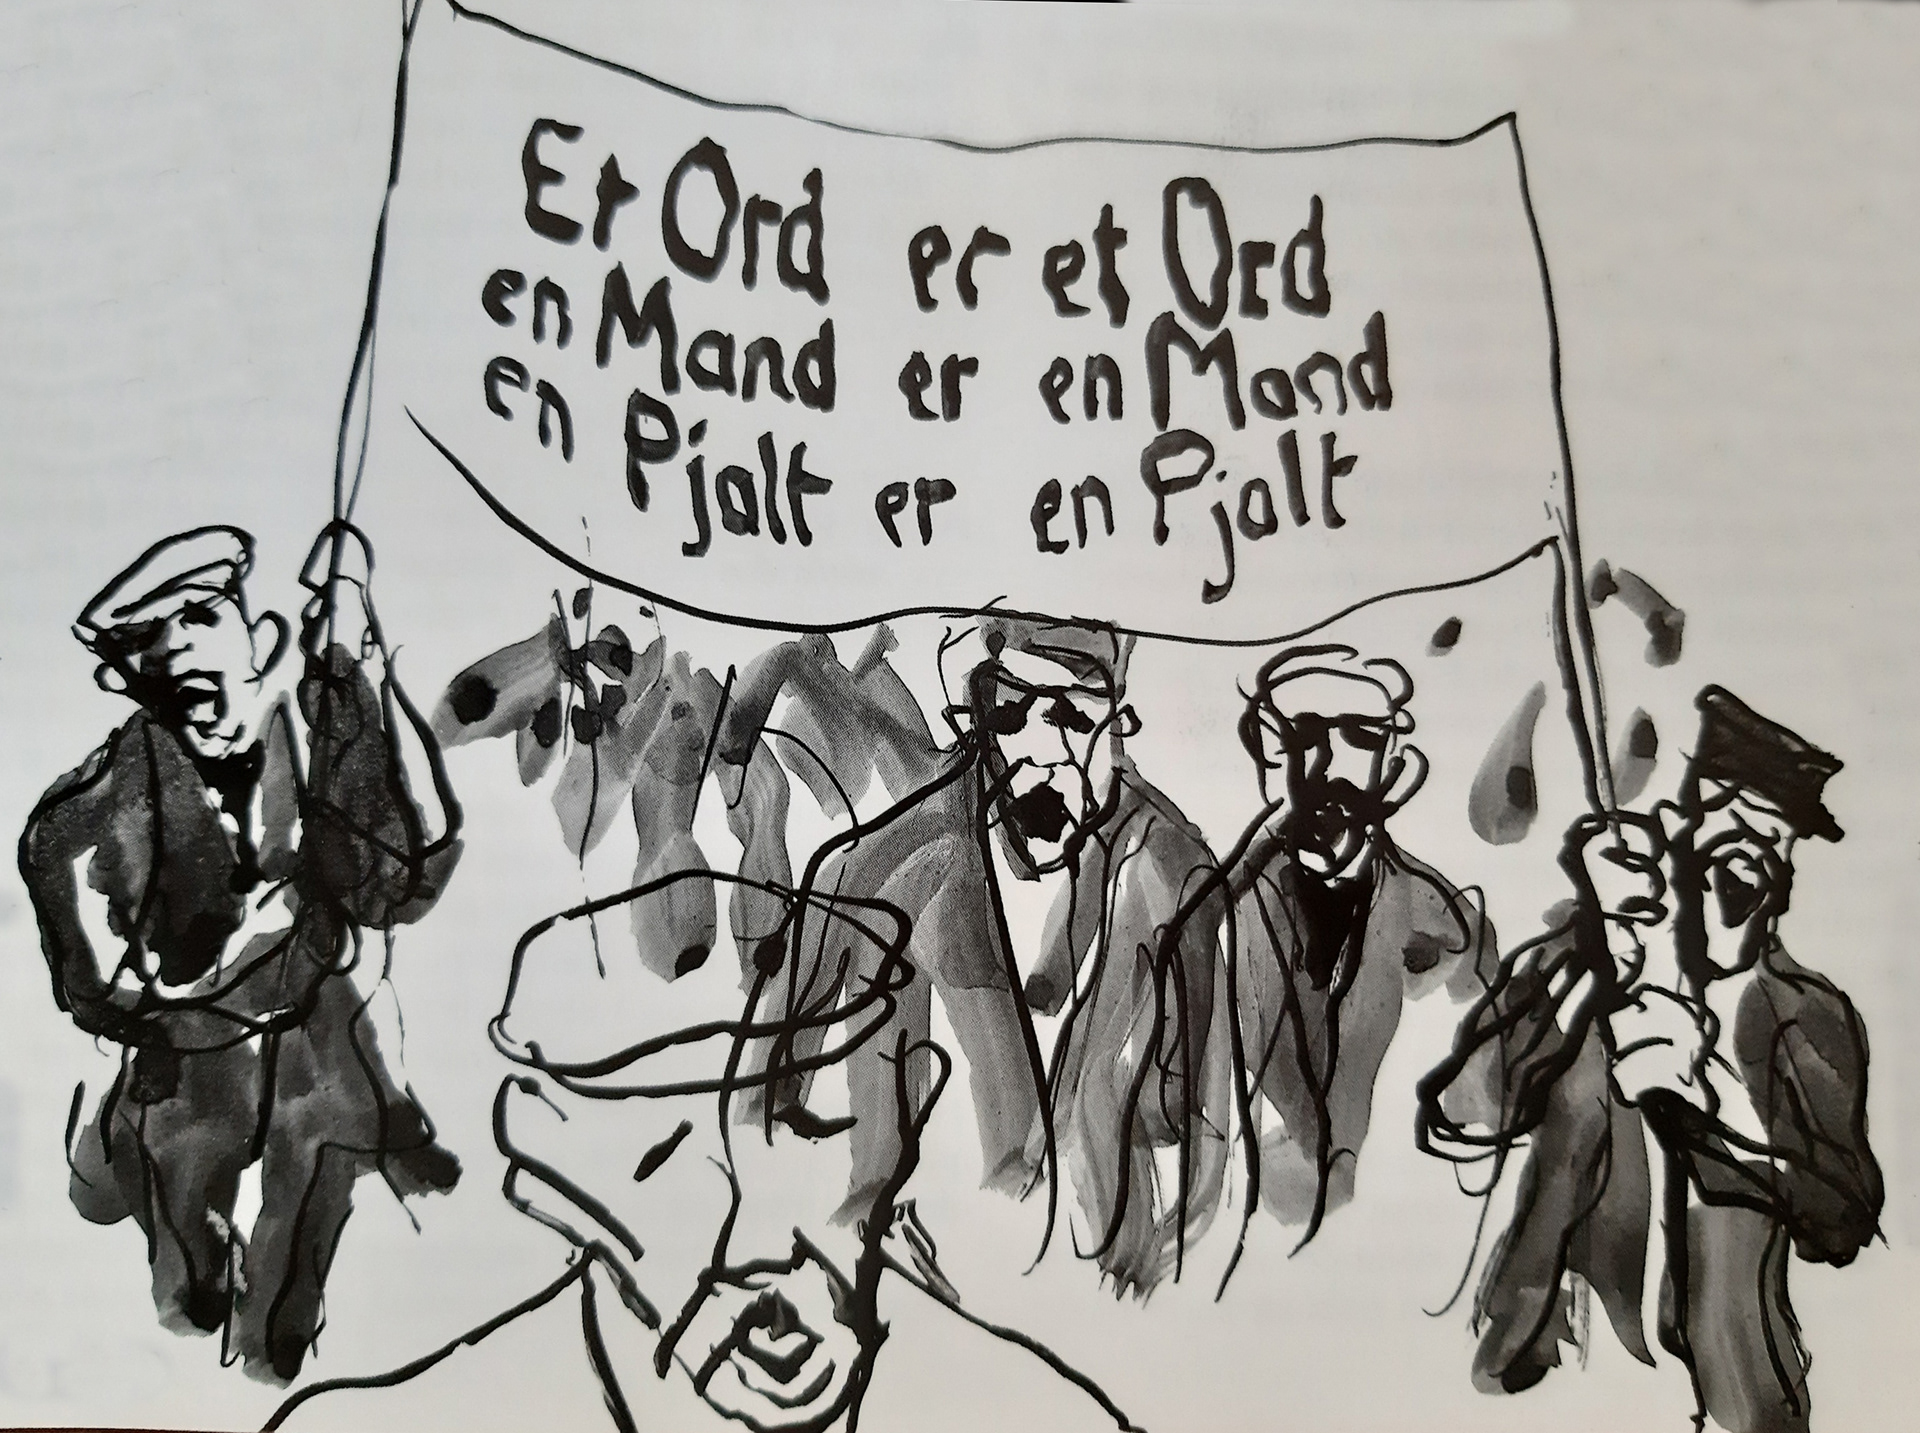 Et Ord er et Ord
en Mand er en Mand
en Pjalt er en Pjalt